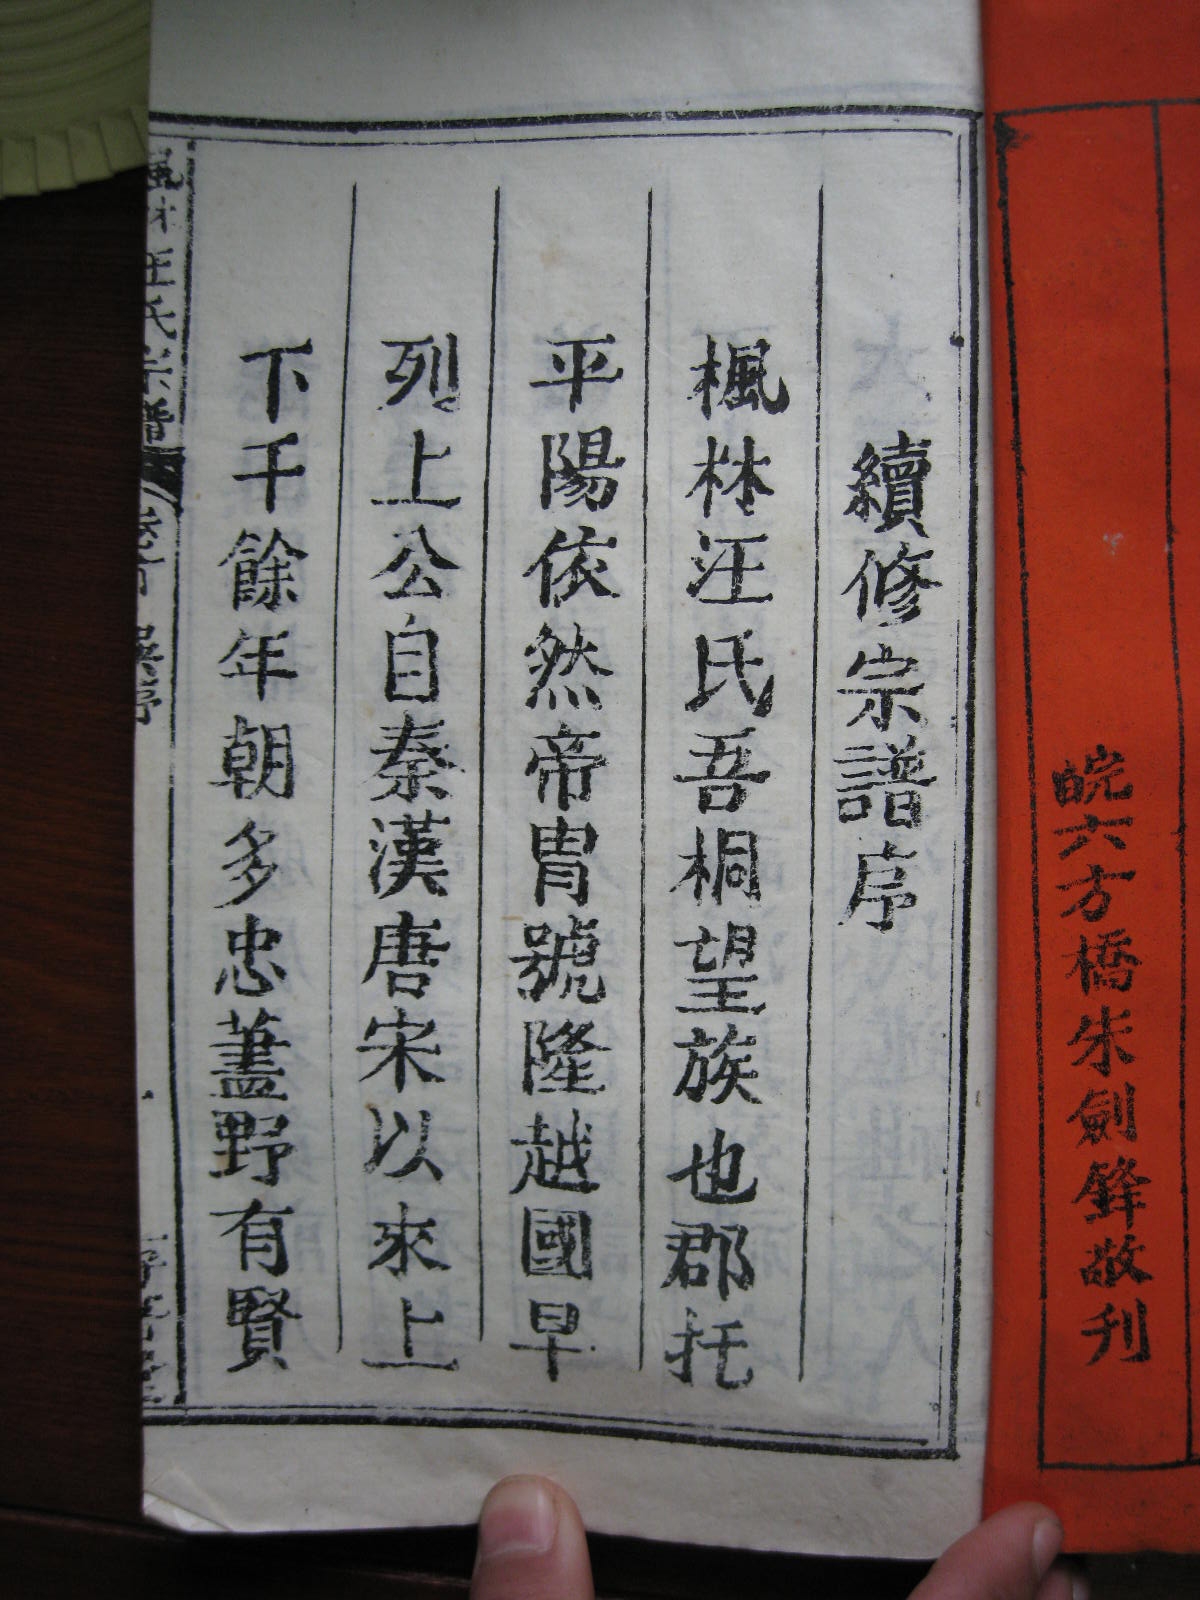 皖六方橋朱劍鋒敬刊
續修宗譜序
楓林汪氏吾桐望族也郡托
平陽依然帝胄號隆越國早
列上公自秦漢唐宋以來上
下千餘年朝多忠藎野有賢
楓林汪氏宗譜